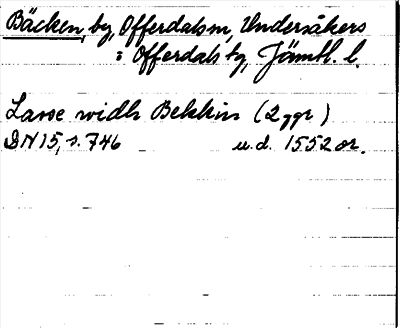 Bäcken, by, Offerdalsm, Undersåkers
: Offerdals tg, Jämtl. l.
Lasse widh Bekkin (2 ggr)
DN 15, s. 746 u.d. 1552 or.